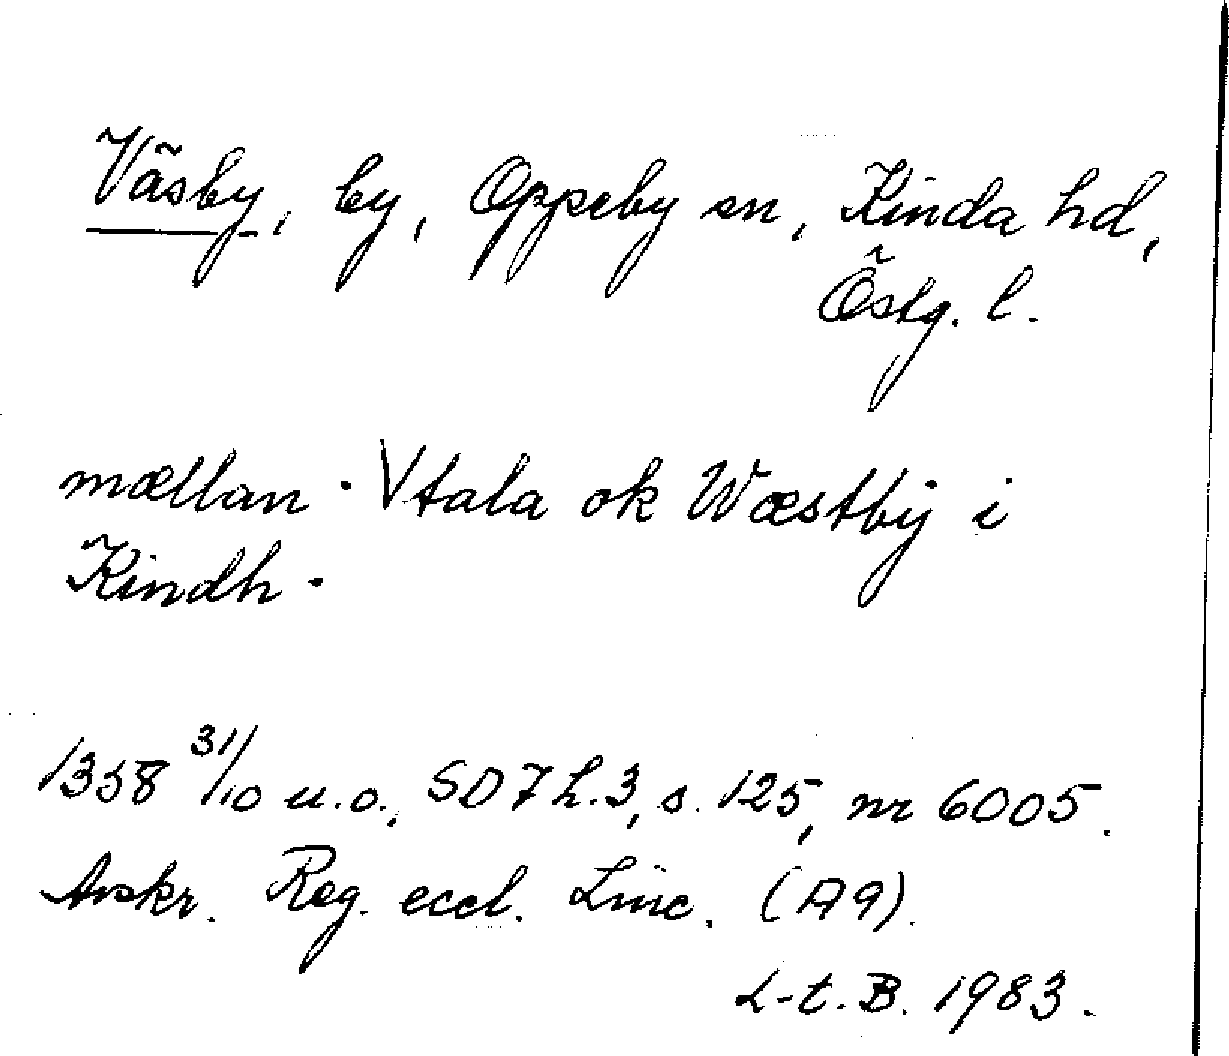 Väsby, by, Oppeby sn, Kinda hd,
Östg. l.
mællan · Vtala ok Wæstbÿ i
Kindh ·
1358 31/10 u.o., SD 7 h.3, s. 125, nr 6005.
Avskr. Reg. eccl. Linc. (A9).
L-t. B. 1983.